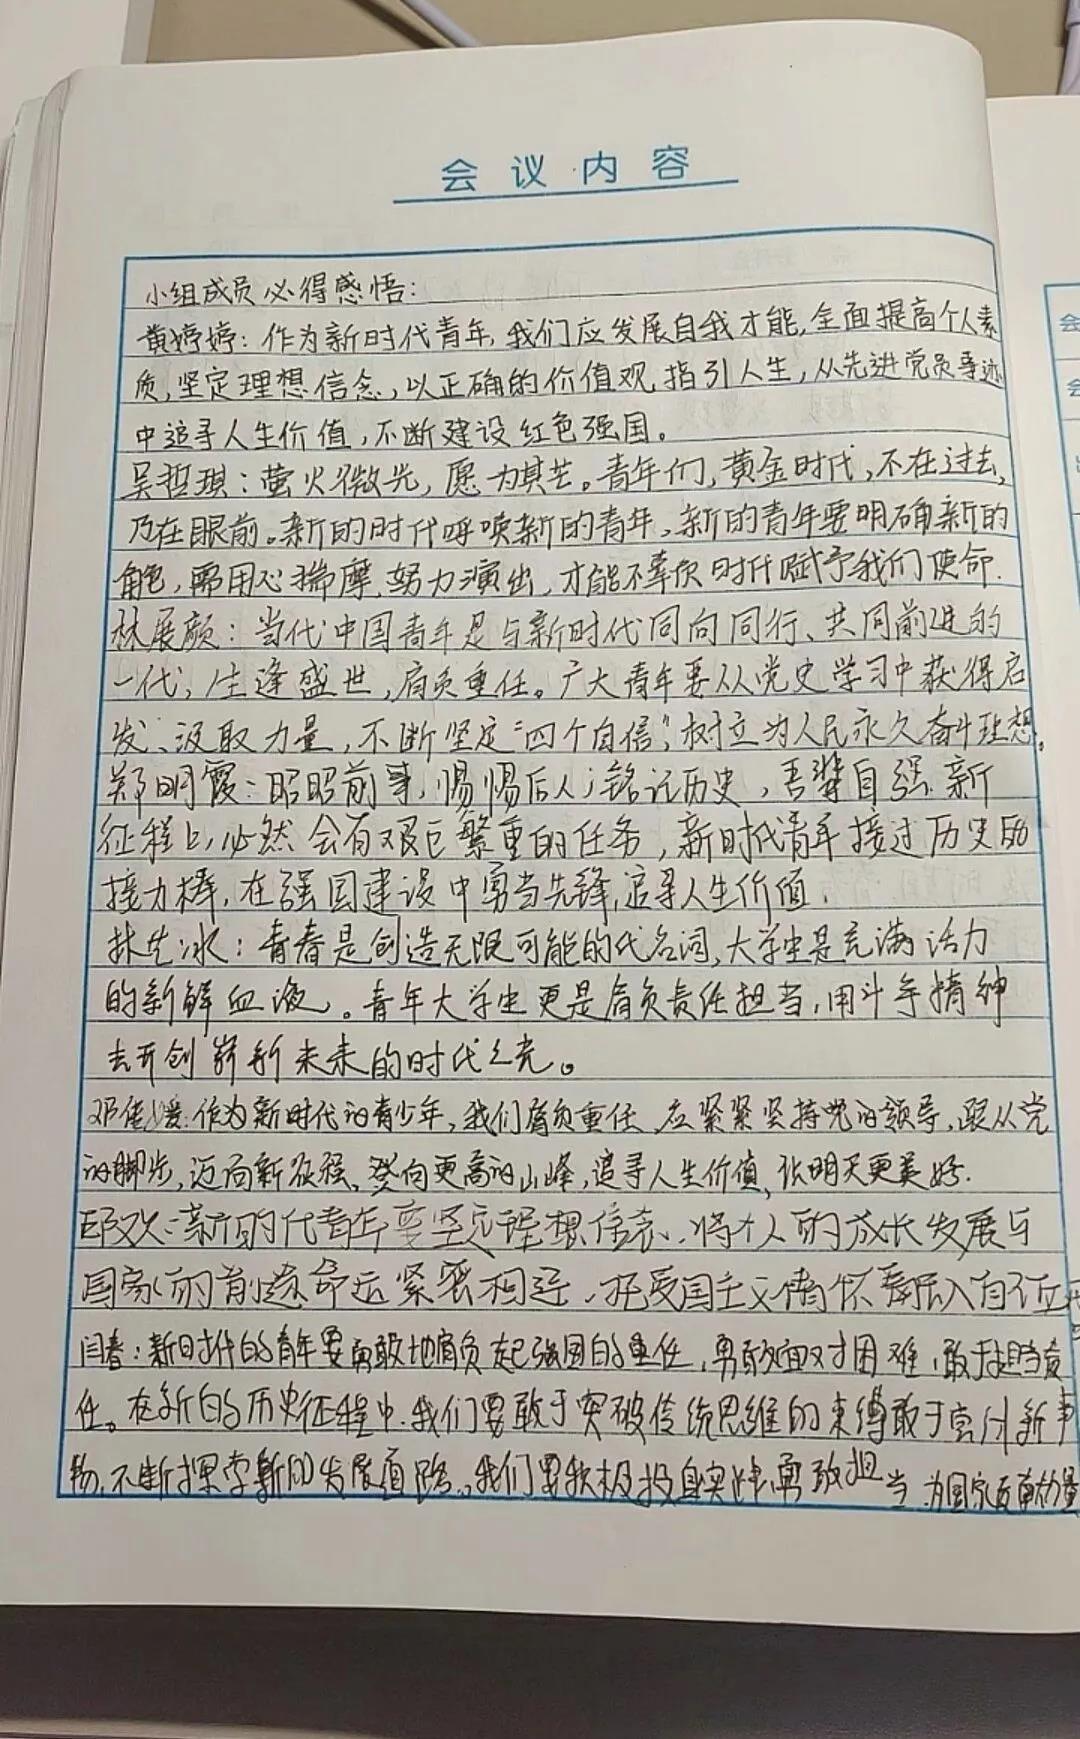 会议内容
小组成员心得感悟：
黄婷婷：作为新时代青年，我们应发展自我才能，全面提高个人素
质，坚定理想信念，以正确的价值观指引人生，从先进党员事迹
中追寻人生价值，不断建设红色强国。
吴哲琪：萤火微光，愿为其芒。青年们，黄金时代，不在过去，
乃在眼前。新的时代呼唤新的青年，新的青年要明确新的
角色，需用心揣摩，努力演出，才能不辜负时代赋予我们使命.
林展颜：当代中国青年是与新时代同向同行、共同前进的
一代，生逢盛世，肩负重任。广大青年要从党史学习中获得启
发、汲取力量，不断坚定“四个自信”，树立为人民永久奋斗理想。
郑明霞：昭昭前事，惕惕后人；铭记历史，吾辈自强.新
征程上，必然会有艰巨繁重的任务，新时代青年接过历史的
接力棒，在强国建设中勇当先锋，追寻人生价值.
林 冰：青春是创造无限可能的代名词，大学生是充满活力
的新鲜血液。青年大学生更是肩负责任担当，用斗争精神
去开创崭新未来的时代之光。
邓佳媛：作为新时代的青少年，我们肩负重任，应紧紧坚持党的领导，跟从党
的脚步，迈向新征程，登向更高的山峰，追寻人生价值，让明天更美好.
邱欢：新时代青年要坚定理想信念，将个人的成长发展与
国家的前途命运紧密相连，把爱国主义情怀 融入自
闫春：新时代的青年要勇敢地肩负起强国的重任，勇敢面对困难，敢于担当责
任。在新的历史征程中，我们要敢于突破传统思维的束缚敢于 新事
物，不断探索新的发展道路。我们要积极投身实践，勇敢担当，为国家 力量